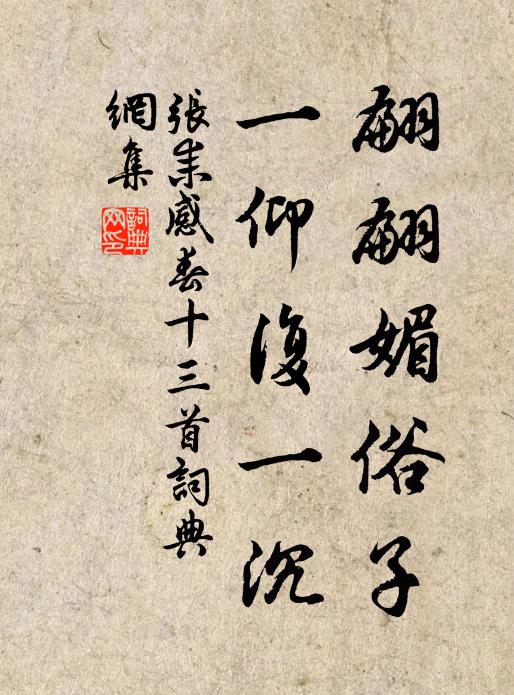 翩翩媚俗子
一仰復一沉
張耒感春十三首詞典
網集
詞典
網印